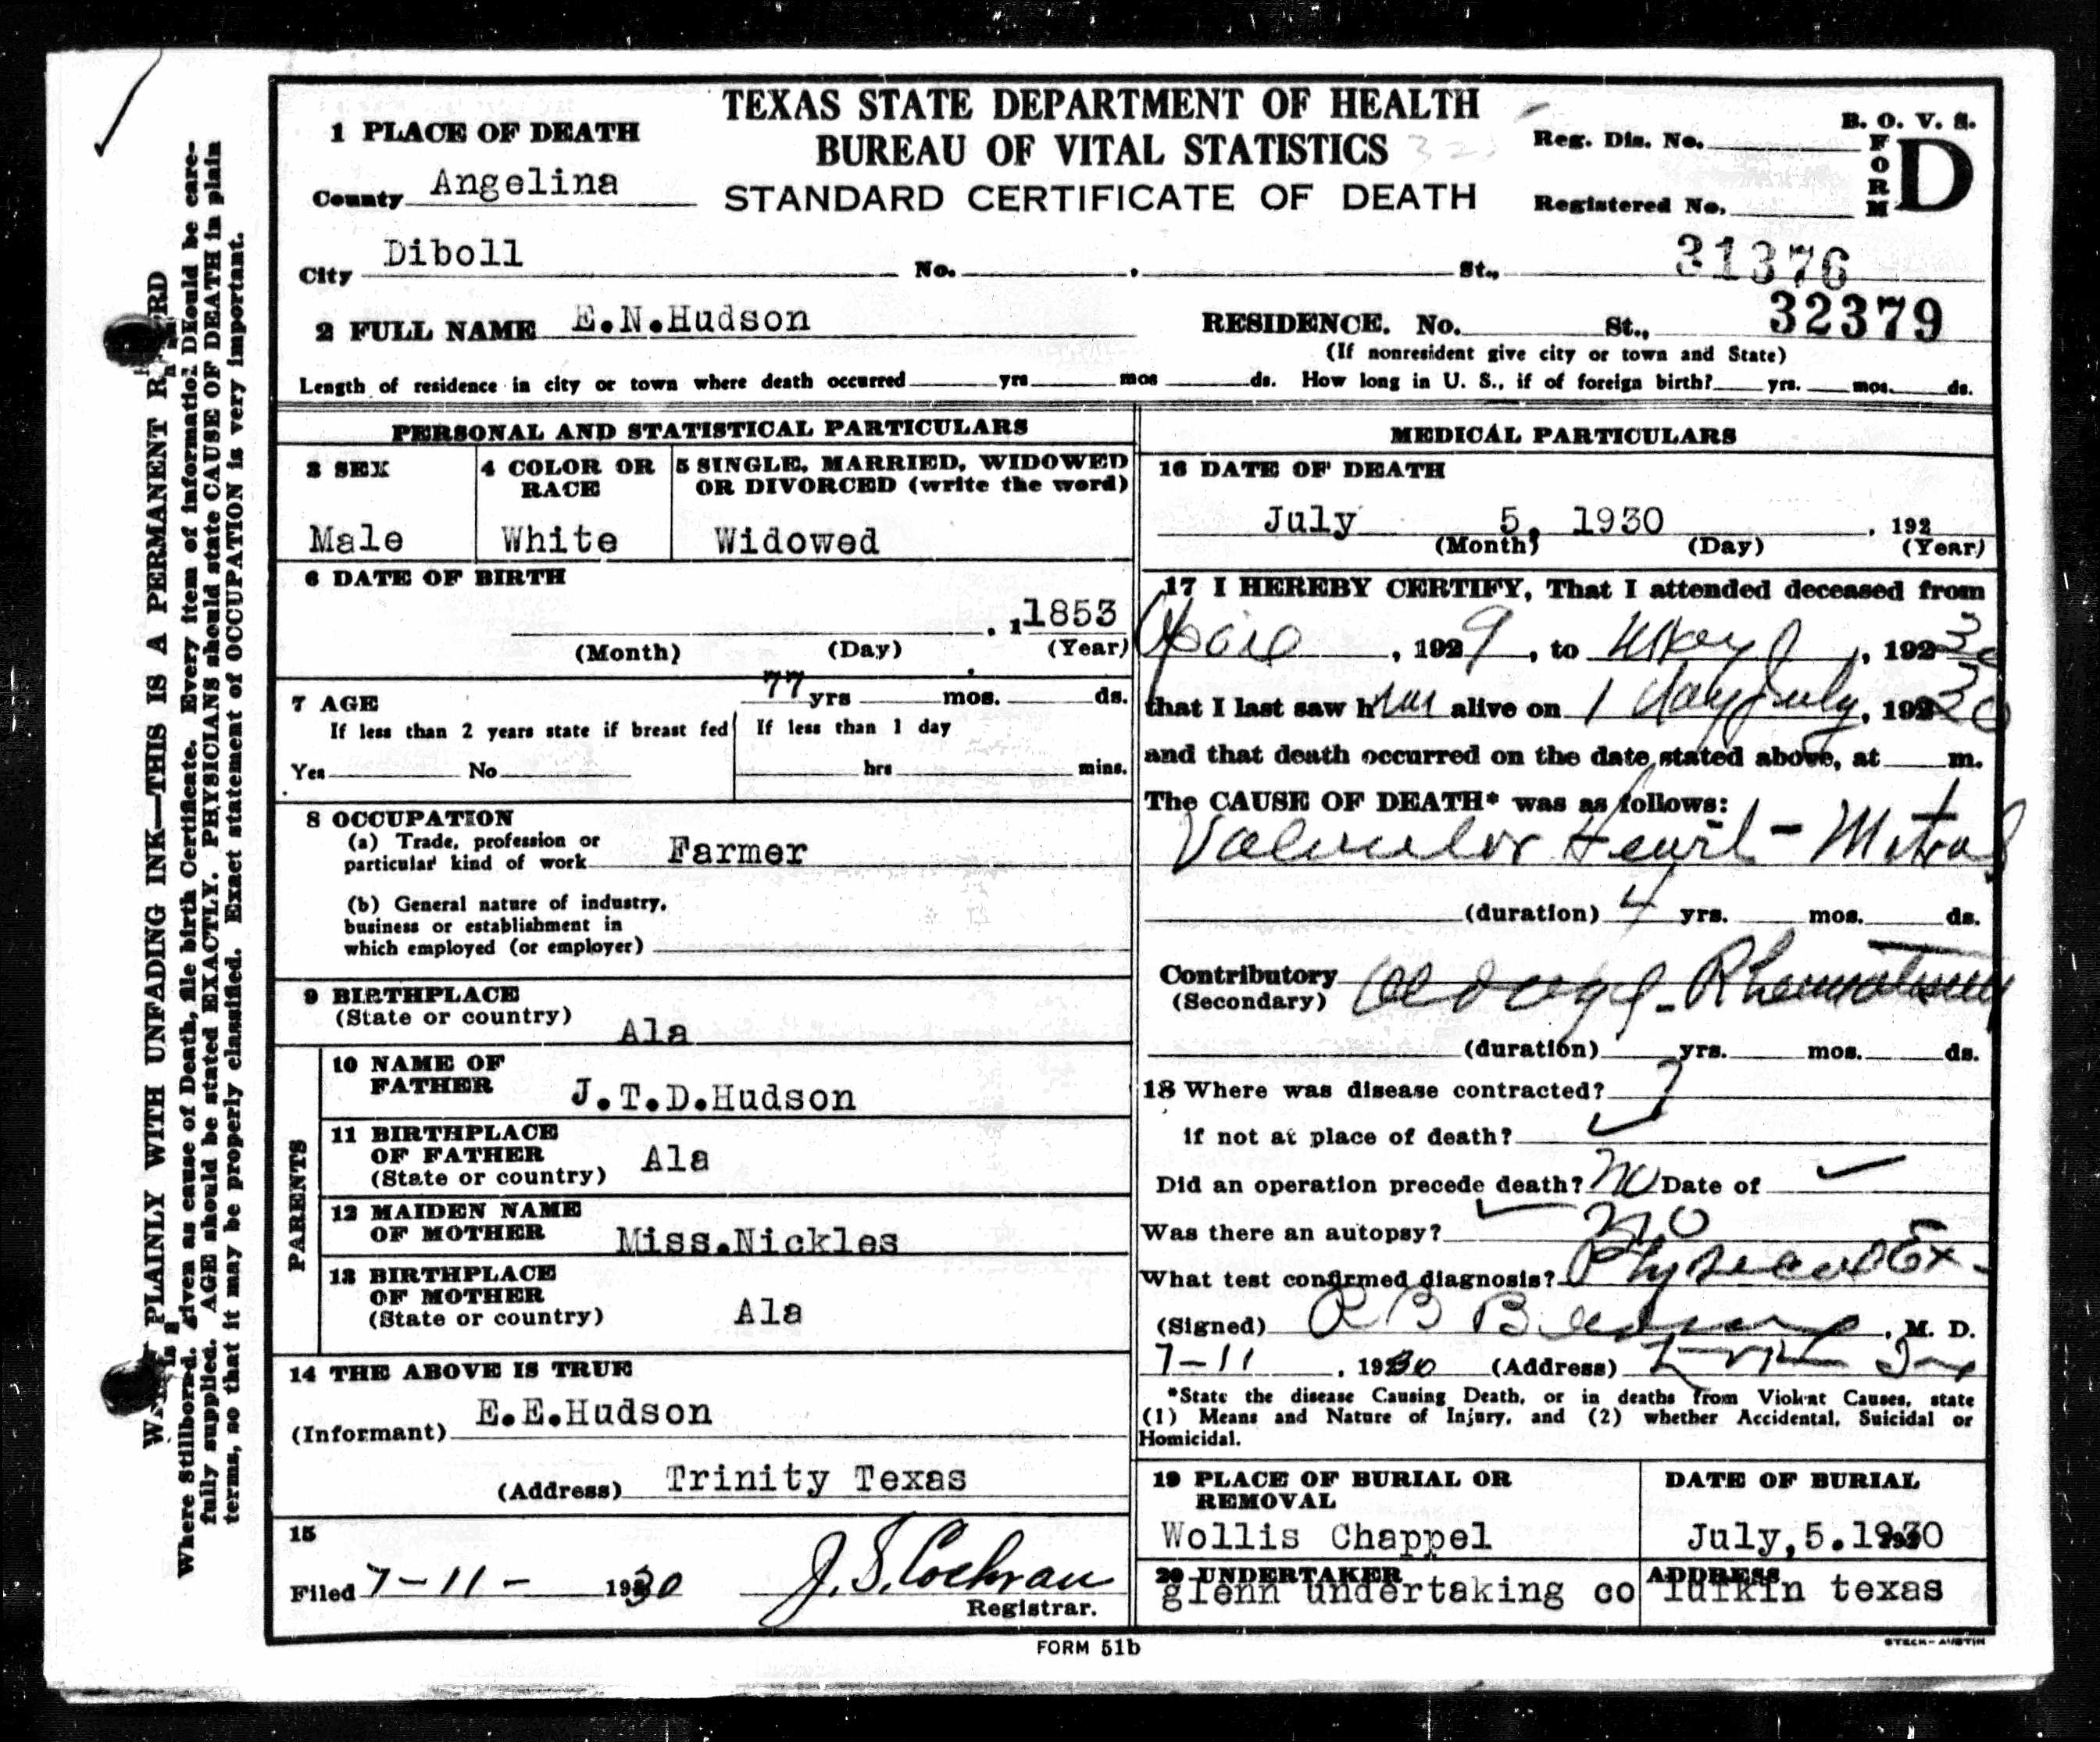 TEXAS STATE DEPARTMENT OF HEALTH
BUREAU OF VITAL STATISTICS
STANDARD CERTIFICATE OF DEATH
B. O. V. S.
FORM D
Reg. Dis. No.
Registered No.
1 PLACE OF DEATH
County Angelina
City Diboll No. St.,
31376
32379
2 FULL NAME E.N.Hudson RESIDENCE. No. St.,
(If nonresident give city or town and State)
Length of residence in city or town where death occurred yrs mos ds. How long in U. S., if of foreign birth? yrs. mos. ds.
PERSONAL AND STATISTICAL PARTICULARS
3 SEX
Male
4 COLOR OR RACE
White
5 SINGLE, MARRIED, WIDOWED
OR DIVORCED (write the word)
Widowed
6 DATE OF BIRTH
, 11853
(Month) (Day) (Year)
7 AGE 77 yrs mos. ds.
If less than 2 years state if breast fed
Yes No
If less than 1 day
hrs mins.
8 OCCUPATION
(a) Trade, profession or
particular kind of work Farmer
(b) General nature of industry,
business or establishment in
which employed (or employer)
9 BIRTHPLACE
(State or country) Ala
PARENTS
10 NAME OF
FATHER J.T.D.Hudson
11 BIRTHPLACE
OF FATHER
(State or country) Ala
12 MAIDEN NAME
OF MOTHER Miss.Nickles
13 BIRTHPLACE
OF MOTHER
(State or country) Ala
14 THE ABOVE IS TRUE
(Informant) E.E.Hudson
(Address) Trinity Texas
15
Filed 7-11- 1930 J. S. Cochran
Registrar.
MEDICAL PARTICULARS
16 DATE OF DEATH
July 5, 1930 , 192
(Month) (Day) (Year)
17 I HEREBY CERTIFY, That I attended deceased from
, 1929, to , 19230
that I last saw him alive on 1 day July, 19230
and that death occurred on the date stated above, at m.
The CAUSE OF DEATH* was as follows:
Valvular Heart - Mitral
(duration) 4 yrs. mos. ds.
Contributory Old age - Rheumatism
(Secondary)
(duration) yrs. mos. ds.
18 Where was disease contracted? ?
if not at place of death?
Did an operation precede death? No Date of
Was there an autopsy? No
What test confirmed diagnosis? Physical Ex-
(Signed) R B , M. D.
7-11 , 1930 (Address) Lufkin Tex
*State the disease Causing Death, or in deaths from Violent Causes, state
(1) Means and Nature of Injury, and (2) whether Accidental, Suicidal or
Homicidal.
19 PLACE OF BURIAL OR
REMOVAL
Wollis Chappel
DATE OF BURIAL
July,5.1930
20 UNDERTAKER
glenn undertaking co
ADDRESS
lufkin texas
FORM 51b
STECK-AUSTIN
PLAINLY WITH UNFADING INK—THIS IS A PERMANENT
Where Stillborn is given as cause of Death, file birth Certificate. Every item of information should be care-
fully supplied. AGE should be stated EXACTLY. PHYSICIANS should state CAUSE OF DEATH in plain
terms, so that it may be properly classified. Exact statement of OCCUPATION is very important.